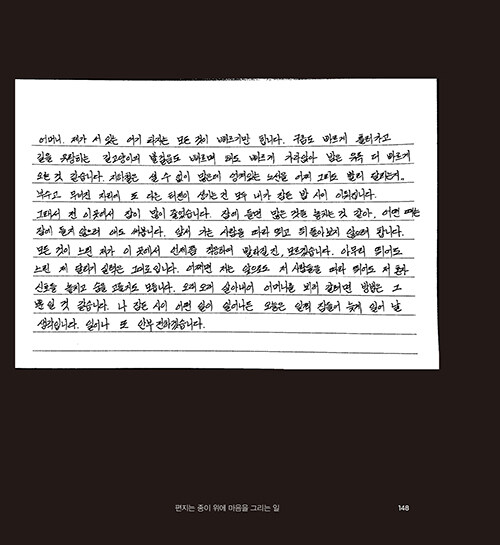 어머니. 제가 서 있는 여기 파리는 모든 것이 빠르기만 합니다. 구름도 빠르게 흘러가고
길을 못참하는 길고양이의 발걸음도 빠르며 해도 빠르게 가라앉아 밤은 유독 더 빠르게
오는 것 같습니다. 지하철은 셀 수 없이 많은데 엉켜있는 노선을 어찌 그리도 빨리 달리는지..
부수고 무너진 자리에 또 다른 터전이 생기는 건 모두 내가 잠든 밤 사이 이뤄집니다.
그래서 전 이곳에서 잠이 많이 줄었습니다. 잠에 들면 많은 것을 놓치는 것 같아, 어떤 때는
잠에 들지 않으려 애도 써봅니다. 앞서 가는 사람을 따라 뛰고 뒤돌아보지 않으려 합니다.
모든 것이 느린 제가 이 곳에서 언제쯤 적응하여 발맞출런지, 모르겠습니다. 아무리 뛰어도
느린 제 달리기 실력은 그대로입니다. 어쩌면 저는 앞으로도 저 사람들을 따라 뛰어도 저 초록
신호를 놓치고 숨을 고를지도 모릅니다. 오래 오래 살아내어 어머니를 뵈러 갈려면 방법은 그
뿐일 것 같습니다. 나 잠든 사이 어떤 일이 일어나든 오늘은 일찍 잠들어 늦게 일어 날
생각입니다. 일어나 또 안부 전하겠습니다.
편지는 종이 위에 마음을 그리는 일
148